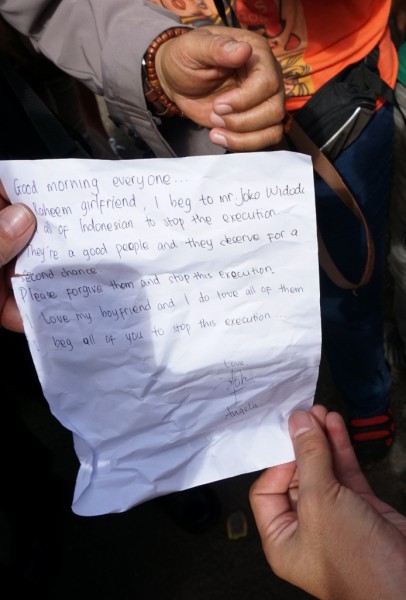 Good morning everyone...
Raheem girlfriend, I beg to mr Joko Widodo
all of Indonesian to stop the execution
They're a good people and they deserve for a
second chance
Please forgive them and stop this execution.
I Love my boyfriend and I do love all of them
I beg all of you to stop this execution...
Love
Angela